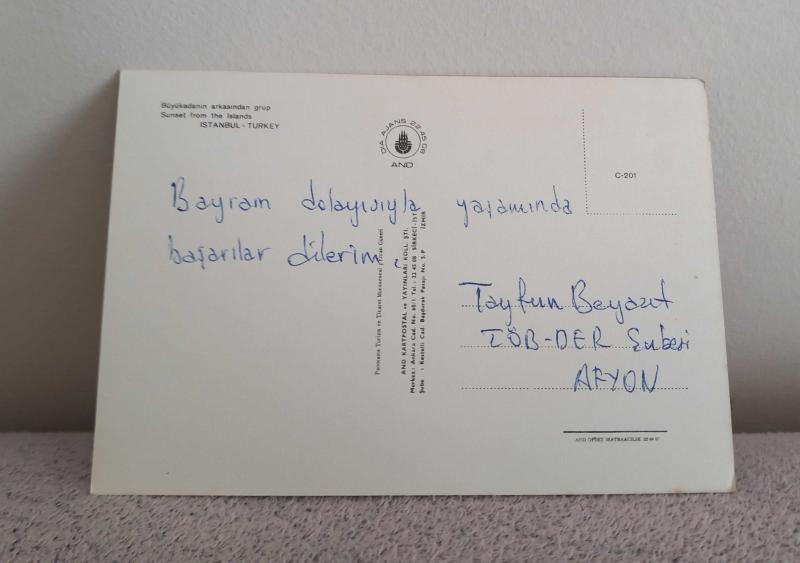 Büyükadanın arkasından grup
Sunset from the Islands
ISTANBUL - TURKEY
DİA AJANS 22 45 08
AND
C-201
Bayram dolayısıyla yaşamında
başarılar dilerim.
Tayfun Beyazıt
TÖB-DER Şubesi
AFYON
AND KARTPOSTAL ve YAYINLARI KOLL. ŞTİ.
Merkez: Ankara Cad. No. 60/1 Tel.: 22 45 08 SİRKECİ - İST.
Şube : Kestelli Cad. Başdurak Pasajı No. 5.P İZMİR
AND OFSET MATBAACILIK